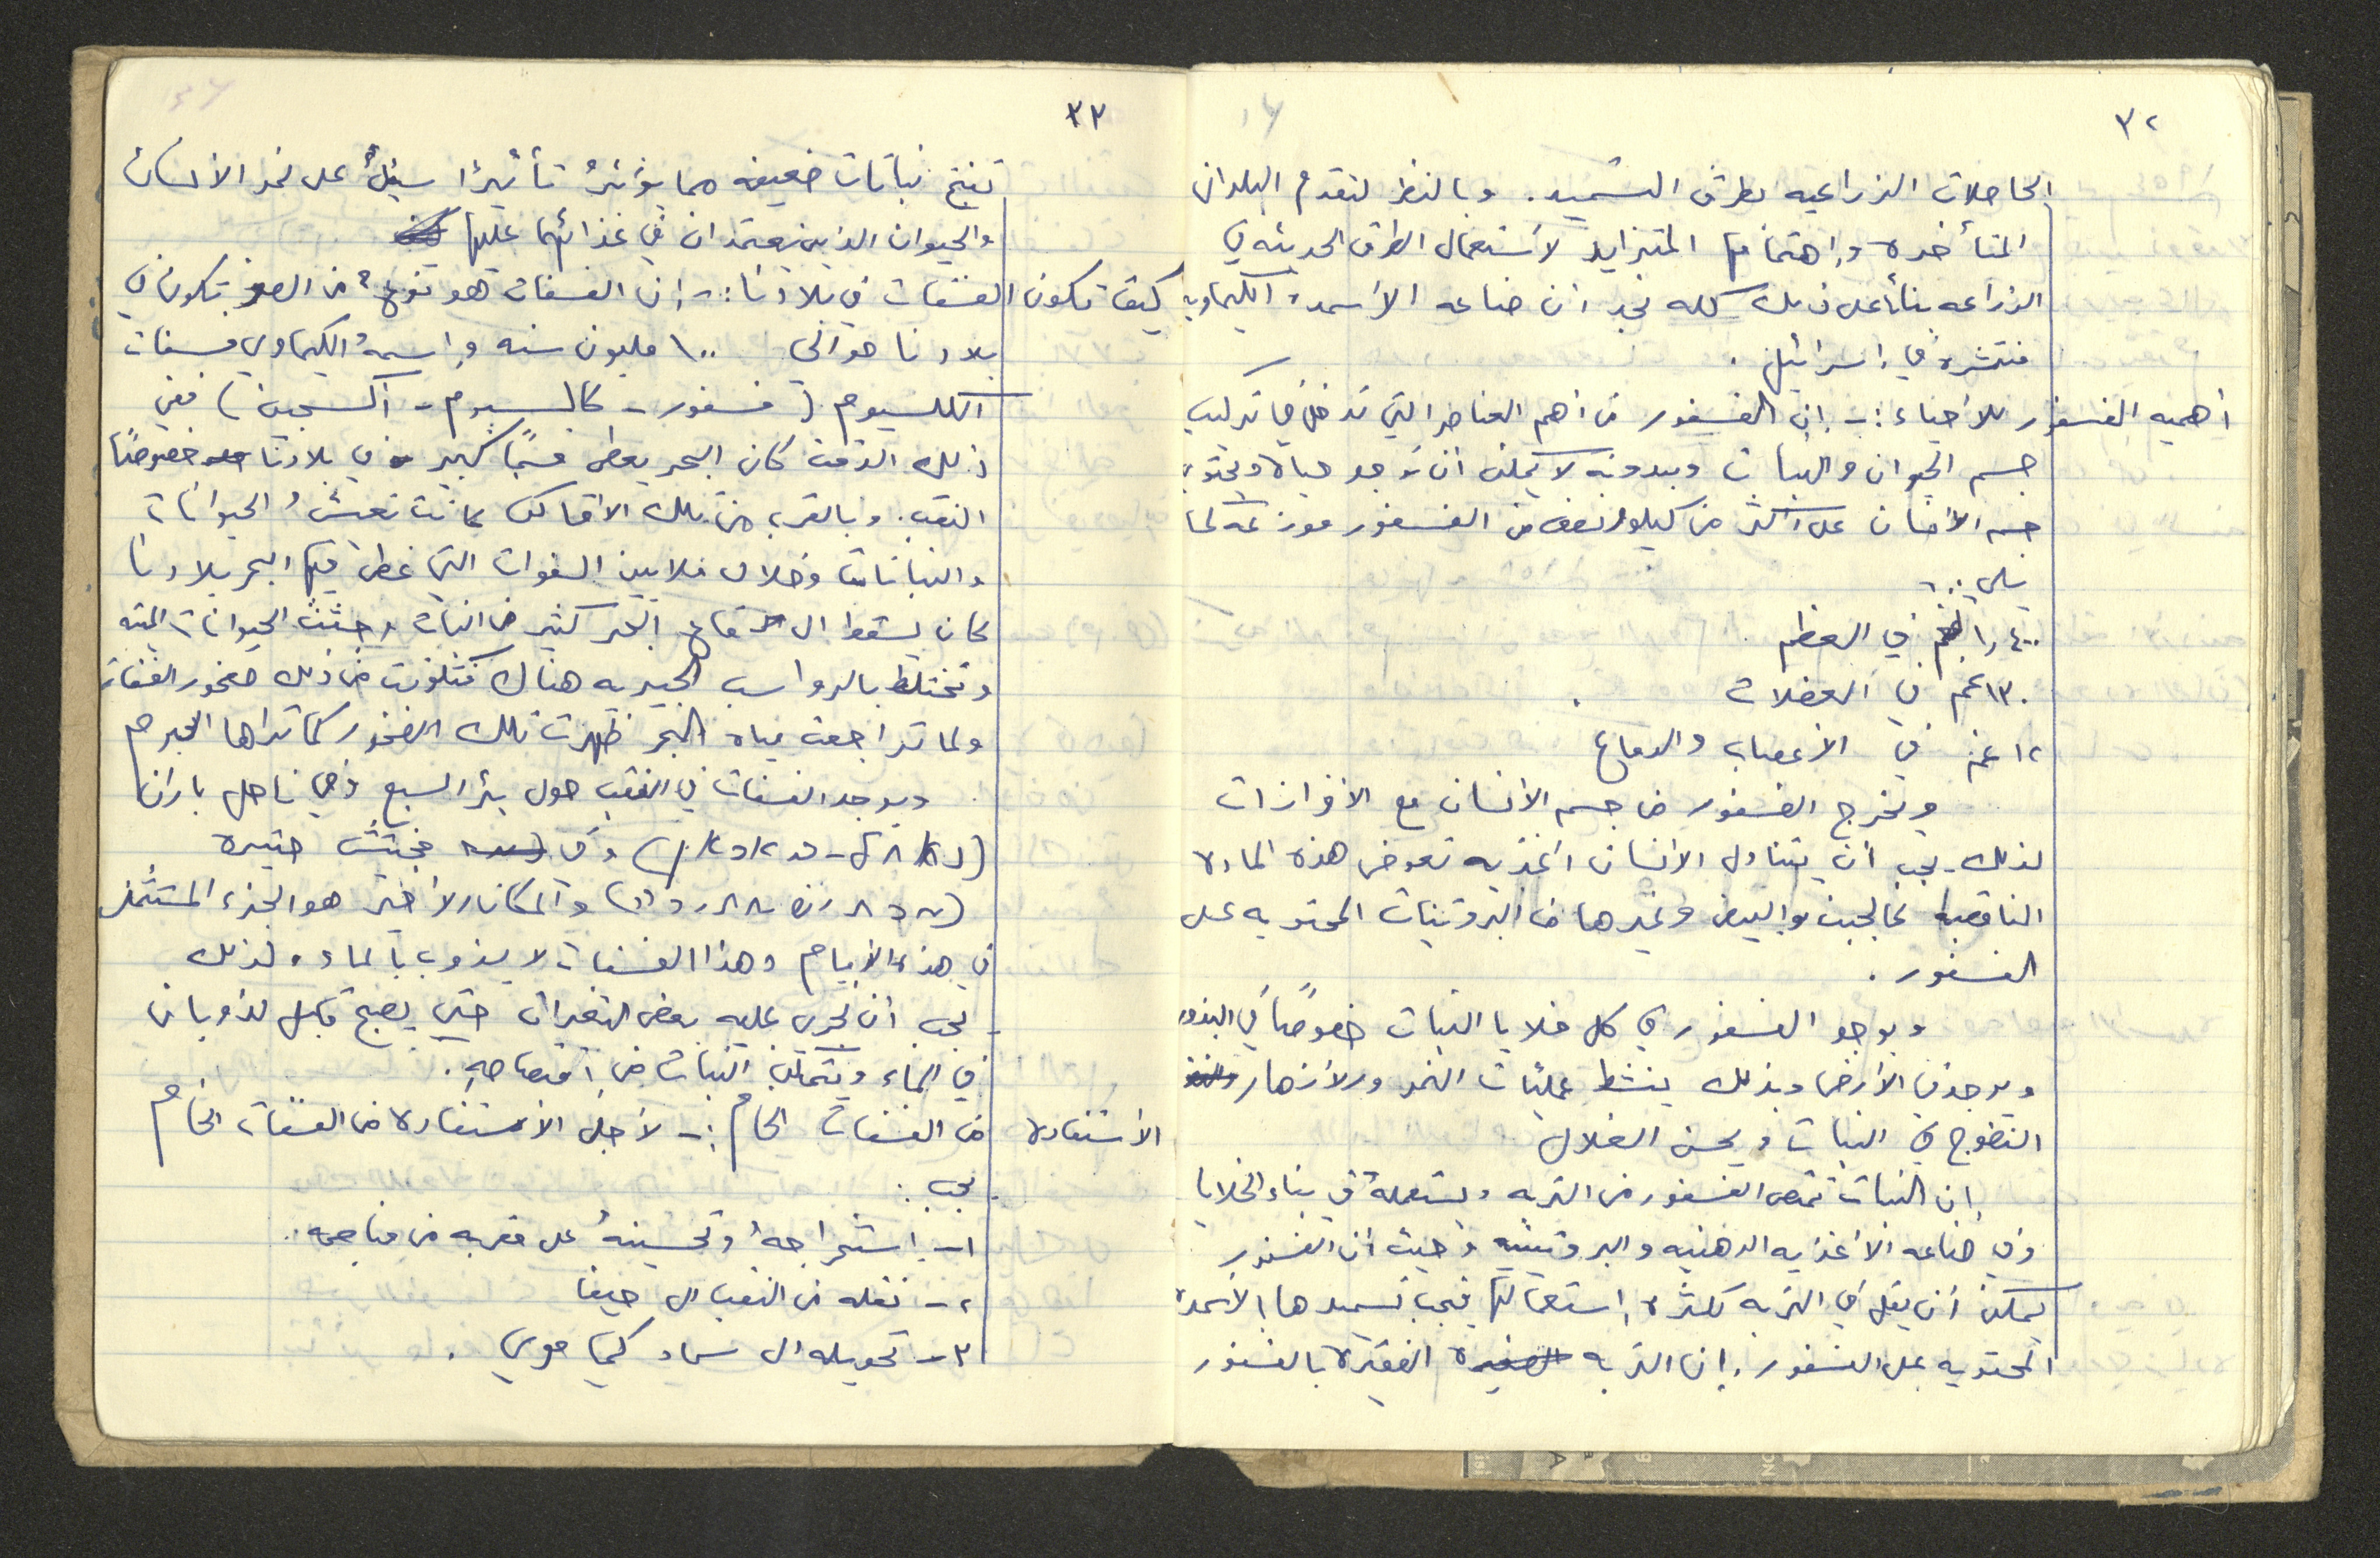 ٣٢
الحاصلات الزراعيه بطرق التسميد. وبالنظر لتقدم البلدان
المتأخره وإهتمامها المتزايد لأستعمال الطرق الحديثه في
الزراعه بنأ على ذلك كله نجد ان صناعه الأسمدة الكيماويه
منتشره في إسرائيل.
أهميه الفسفور للأحياء :- إن الفسفور من أهم العناصر التي تدخل في تركيب
جسم الحيوان والنبات وبدونه لا يمكن أن توجد حياة ويحتوي
جسم الأنسان على أكثر من كيلو ونصف من الفسفور موزعه كما
يلي :-
١٫٤٠٠ كغم في العظم
١٣٠ غم في العضلات .
١٢ غم في الأعصاب والدماغ
ويخرج الفسفور من جسم الأنسان مع الأفرازات
لذلك يجب أن يتناول الأنسان أغذيه تعوض هذه الماده
الناقصه كالجبن والبيض وغيرها من البروتينات المحتويه على
الفسفور .
ويوجد الفسفور في كل خلايا النبات خصوصًا في البذور
ويوجد في الأرض وبذلك ينشط عمليات النمو والأزهار
النضوج في النبات ويحسن الغلال
إن النبات تمتص الفسفور من التربه ويستعمله في بناء الخلايا
وفي صناعه الأغذيه الدهنيه والبروتينيه وحيث أن الفسفور
يمكن أن يقل في التربه لكثرة إستعمالها فيجب تسميدها بالأسمدة
المحتويه على الفسفور. إن التربه الفقيرة بالفسفور
٣٣
تنتج نباتات ضعيفه مما يؤثرُ تأثيرًا سيئًا على نمو الأنسان
والحيوان الذين يعتمدان في غذائهما عليها
كيف تكون الفسفات في بلادنا :- إن الفسفات هو نوعٌ من الصخر تكون في
بلادنا حوالي ١٠٠ مليون سنه وإسمهُ الكيماوي فسفات
الكلسيوم (فسفور - كالسيوم - أكسجين) ففي
ذلك الوقت كان البحر يغطي قسمًا كبير في بلادنا خصوصًا
النقب. وبالقرب من تلك الاماكن كانت تعيشُ الحيوانات
والنباتات وخلال ملايين السنوات التي غطى فيها البحر بلادنا
كان يسقط الى قاع البحر كثير من النبات وجثث الحيوانات الميته
وتختلط بالرواسب الجيريه هناك فتكونت من ذلك صخور الفسفات
ولما تراجعت مياه البحر ظهرت تلك الصخور كما تراها اليوم
ويوجد الفسفات في النقب حول بئر السبع وفي ناحل باران
وفي مختيش حتيره
والمكان الأخير هو الجزء المستثمر
في هذه الأيام وهذا الفسفات لا يذوب بالماء. لذلك
يجب أن تجري عليه بعض التغيرات حتى يصبح قابل لذوبان
في الماء ويتمكن النبات من أمتصاصهِ.
الأستفادة من الفسفات الخام :- لأجل الأستفادة من الفسفات الخام
يجب :
١- إستخراجهُ وتحسينهُ على مقربه من مناجمه.
٢- نقله من النقب الى حيفا
٣- تحويله الى سماد كيماوي .